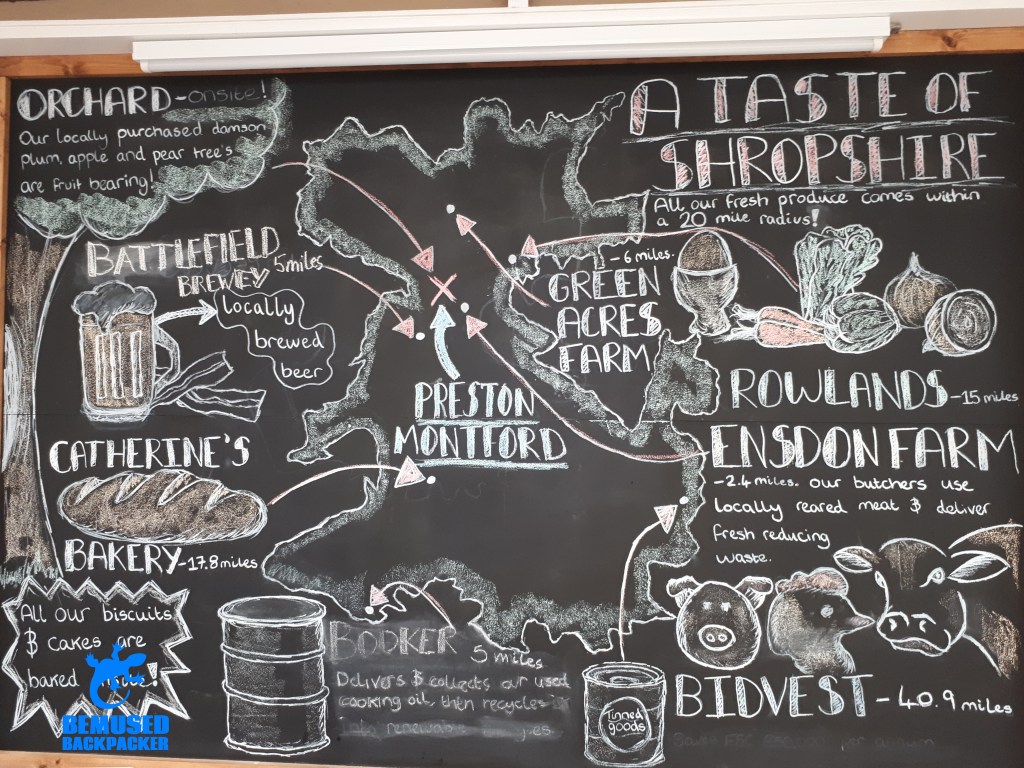 ORCHARD - onsite!
Our locally purchased damson
plum, apple and pear tree's
are fruit bearing!
A TASTE OF
SHROPSHIRE
All our fresh produce comes within
a 20 mile radius!
BATTLEFIELD
BREWEY 5 miles
locally
brewed
beer
- 6 miles.
GREEN
ACRES
FARM
PRESTON
MONTFORD
ROWLANDS - 15 miles
ENSDON FARM
- 2.4 miles. our butchers use
locally reared meat & deliver
fresh reducing
waste.
CATHERINE'S
BAKERY - 17.8 miles
All our biscuits
& cakes are
baked
BOOKER
5 miles
Delivers & collects our used
cooking oil, then recycles
Tinned
goods
BIDVEST - 40.9 miles
BEMUSED
BACKPACKER